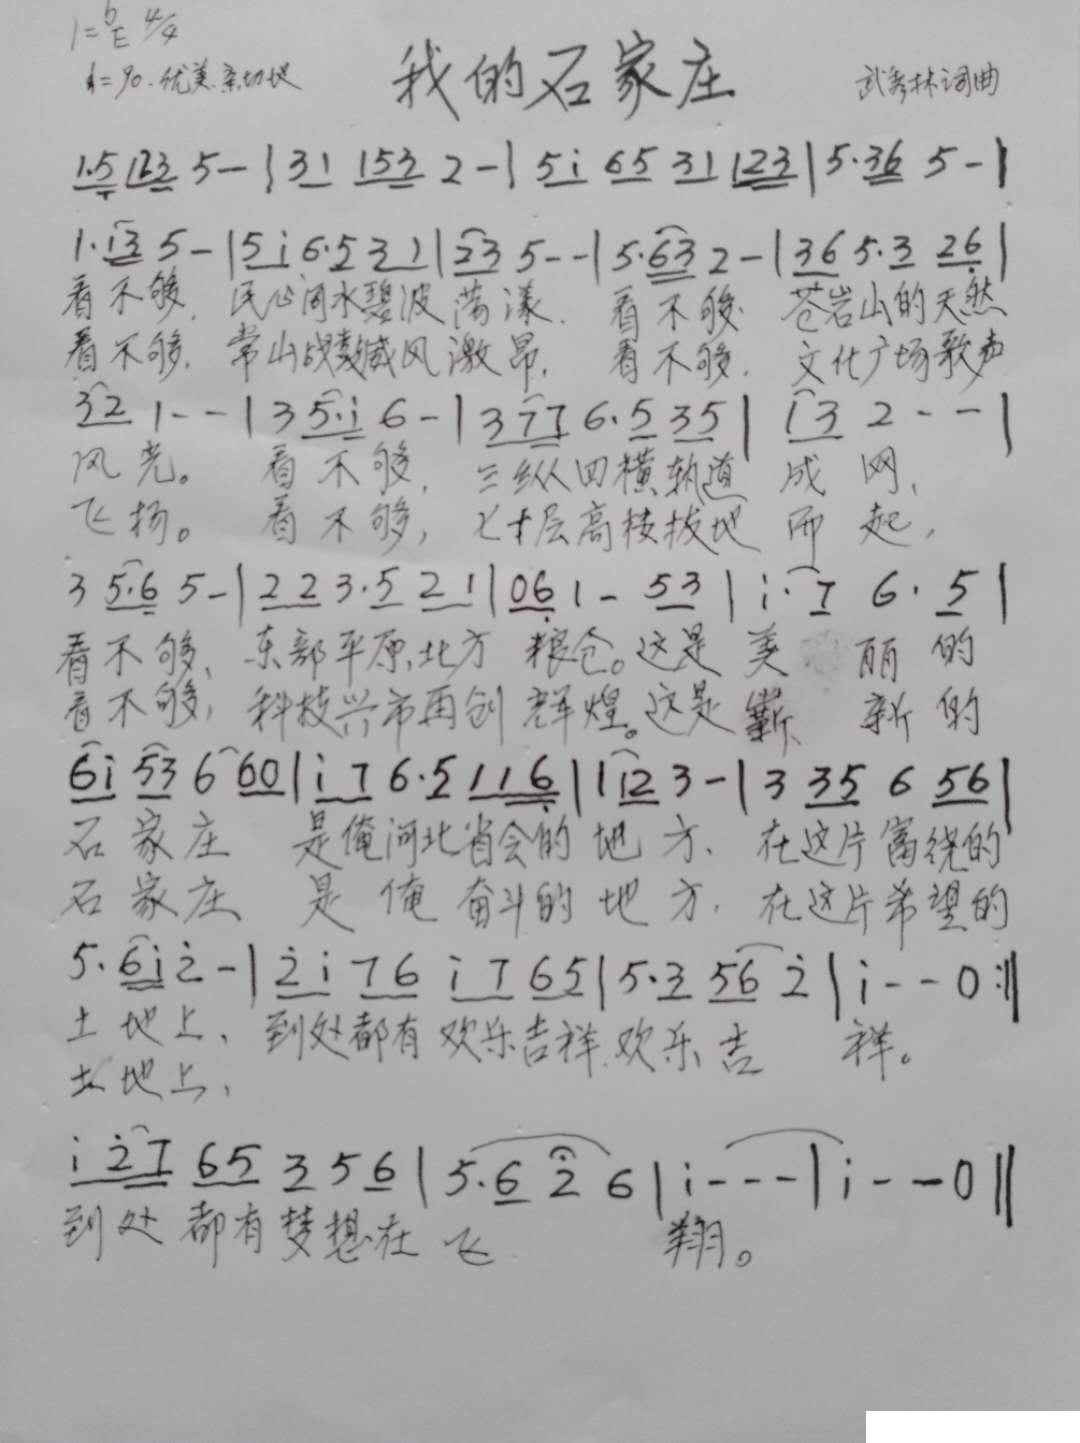 1=♭E 4/4
♩=90. 优美亲切地
我的石家庄
武秀林词曲
1.5 123 5 - | 31 153 2 - | 5i 65 31 123 | 5.36 5 - |
1.i3 5 - | 5i 6.5 31 | 23 5 - - | 5.63 2 - | 36 5.3 26 |
看不够, 民心河水碧波荡漾. 看不够. 苍岩山的天然
看不够, 常山战鼓威风激昂, 看不够. 文化广场歌声
32 1 - - | 3 5.i 6 - | 377 6.5 35 | i3 2 - - |
风光。 看不够, 三纵四横轨道成网、
飞扬。 看不够, 七十层高楼拔地而起,
3 5.6 5 - | 22 3.5 21 | 06 1 - 53 | i.7 6.5 |
看不够、东部平原,北方粮仓。这是美丽的
看不够, 科技兴市再创辉煌。这是崭新的
6i 53 6 60 | i7 6.5 116 | 1 12 3 - | 3 35 6 56 |
石家庄 是俺河北省会的地方、在这片富饶的
石家庄 是俺奋斗的地方, 在这片希望的
5.6i 2̇ - | 2̇i 76 i7 65 | 5.3 56 2̇ | i - - 0 :‖
土地上、到处都有欢乐吉祥.欢乐吉祥。
土地上,
i 2̇7 65 3 5 6 | 5.6 2̇ 6 | i - - - | i - - 0 ‖
到处都有梦想在飞翔。